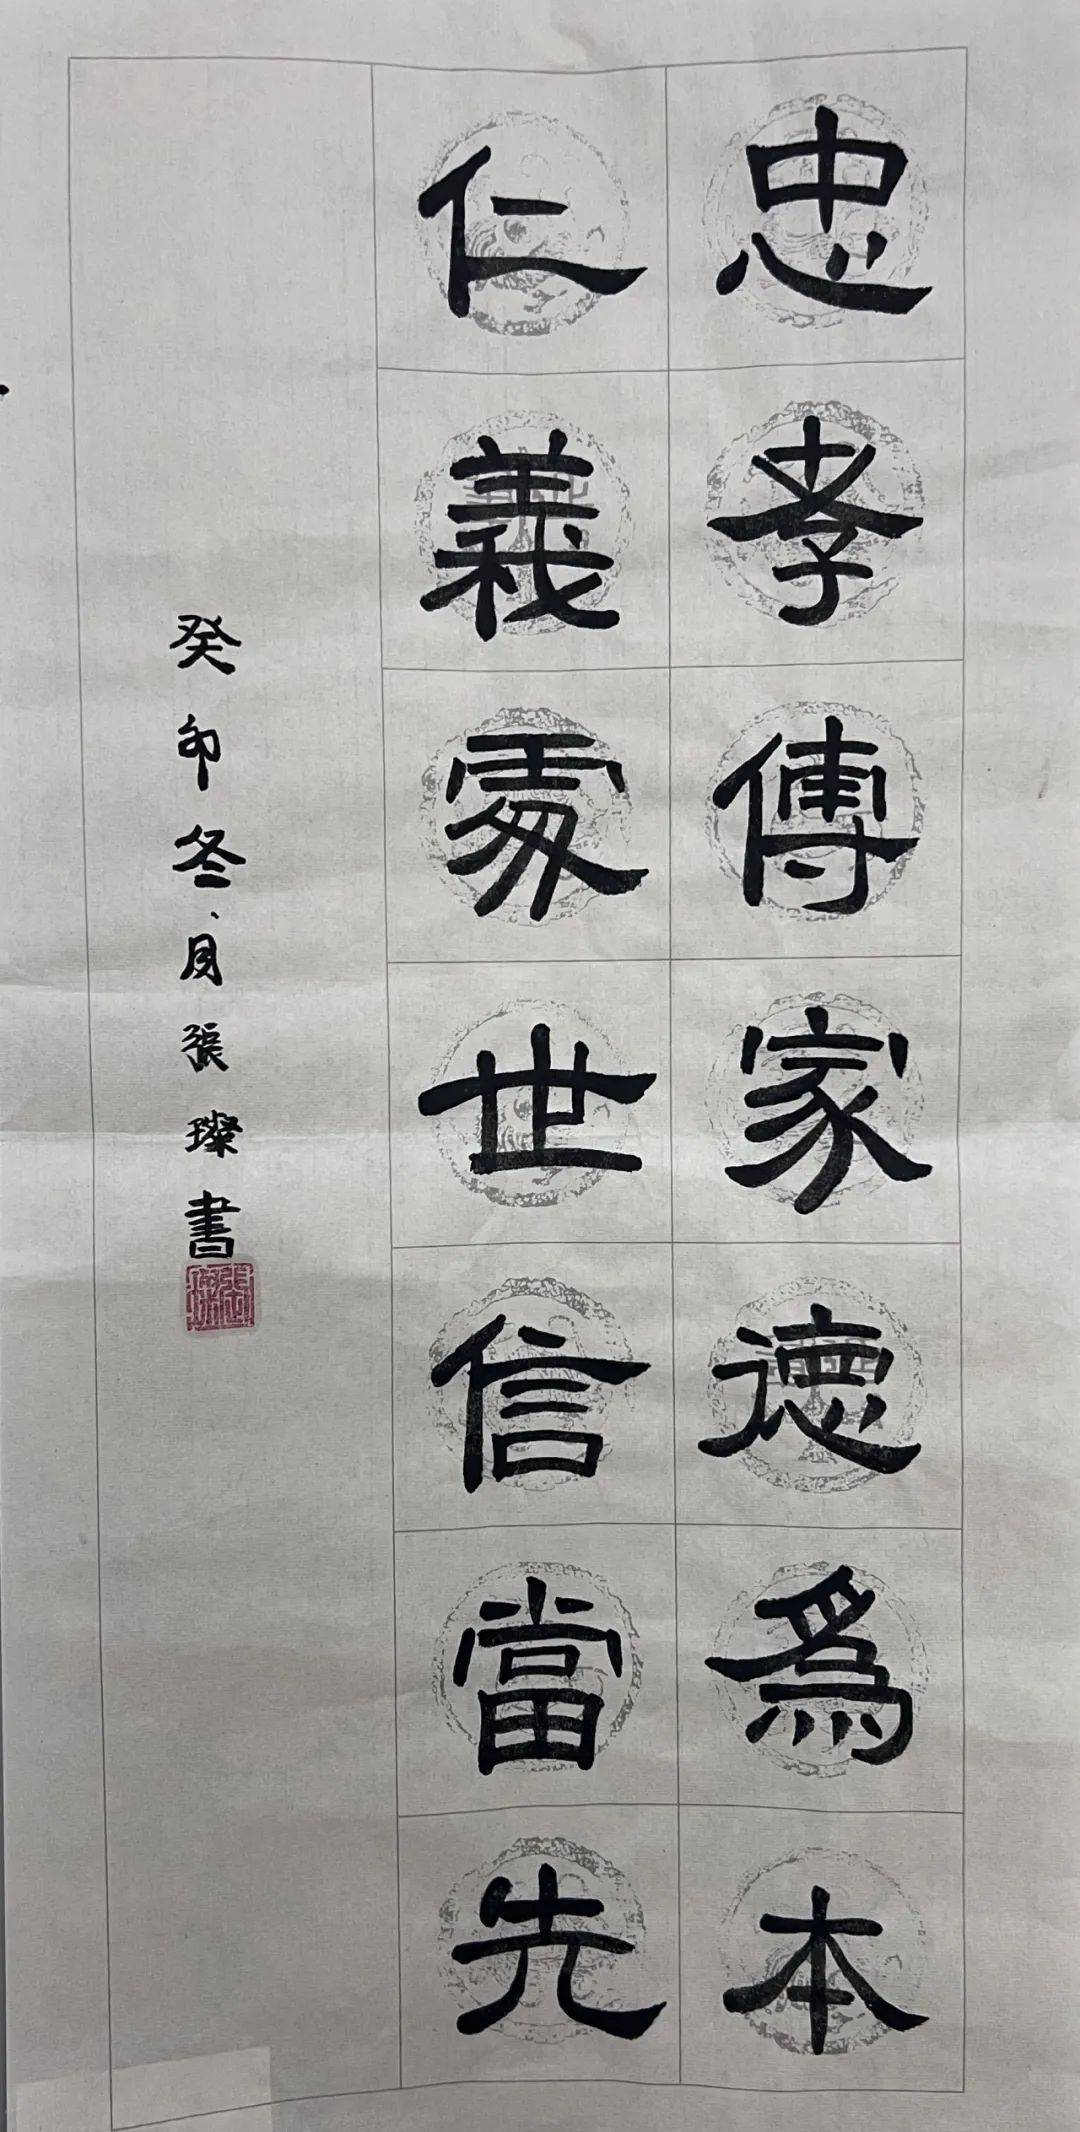 忠孝傳家德為本
仁義處世信當先
癸卯冬月張璨書